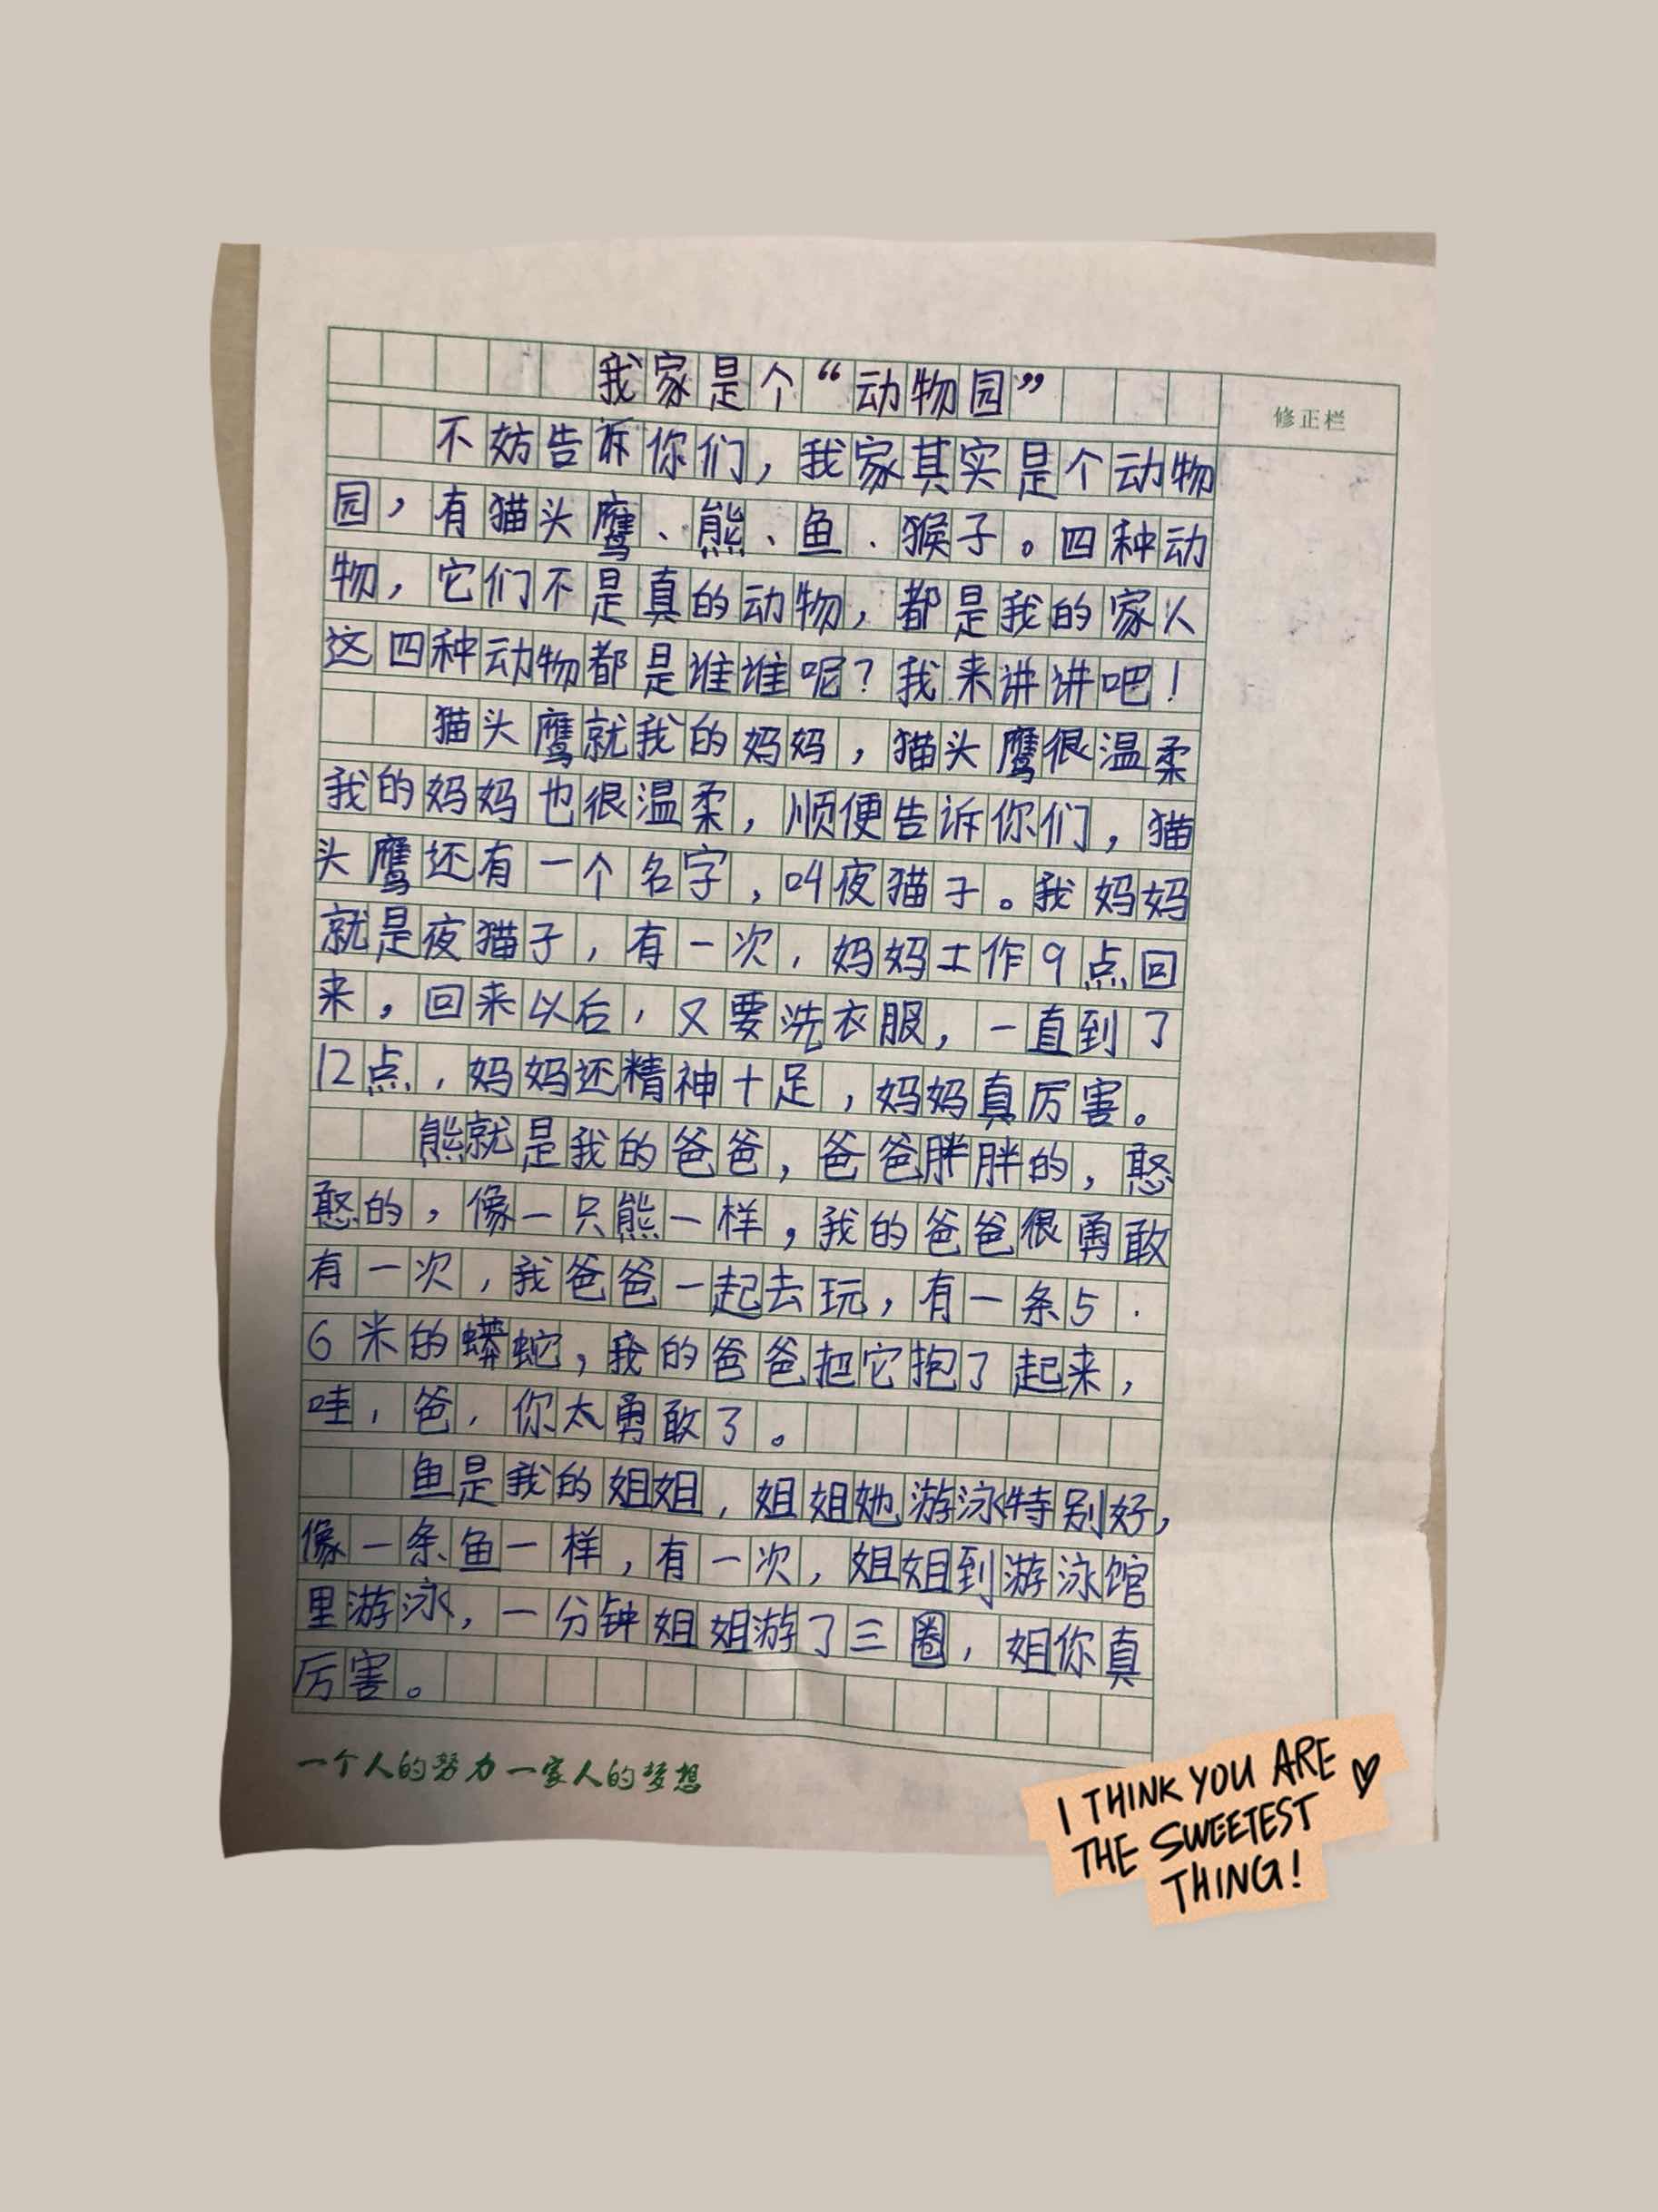 我家是个“动物园”
修正栏
不妨告诉你们，我家其实是个动物
园，有猫头鹰、熊、鱼、猴子。四种动
物，它们不是真的动物，都是我的家人
这四种动物都是谁谁呢？我来讲讲吧！
猫头鹰就我的妈妈，猫头鹰很温柔
我的妈妈也很温柔，顺便告诉你们，猫
头鹰还有一个名字，叫夜猫子。我妈妈
就是夜猫子，有一次，妈妈工作9点回
来，回来以后，又要洗衣服，一直到了
12点，妈妈还精神十足，妈妈真厉害。
熊就是我的爸爸，爸爸胖胖的，憨
憨的，像一只熊一样，我的爸爸很勇敢
有一次，我爸爸一起去玩，有一条5．
6米的蟒蛇，我的爸爸把它抱了起来，
哇，爸，你太勇敢了。
鱼是我的姐姐，姐姐她游泳特别好，
像一条鱼一样，有一次，姐姐到游泳馆
里游泳，一分钟姐姐游了三圈，姐你真
厉害。
一个人的努力一家人的梦想
I THINK YOU ARE
THE SWEETEST
THING!